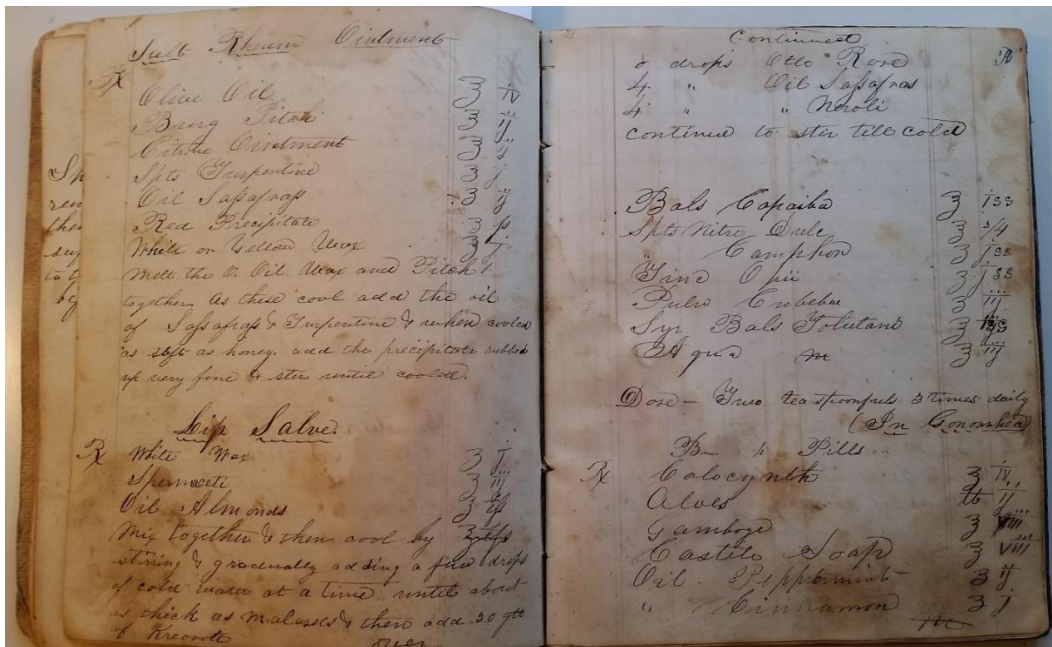 Salt Rheum Ointment
Rx
Olive Oil ℥ iv
Burg Pitch ℥ ij
Citrine Ointment ℥
Spts Turpentine ℥ j
Oil Sassafrass ʒ ij
Red Precipitate ℥ ss
White or Yellow Wax ℥ j
Melt the O. Oil. Wax and Pitch
together. As these cool add the oil
of Sassafrass & Turpentine & when cooled
as soft as honey. add the precipitate rubbed
up very fine & stir until cooled.
Lip Salve
Rx White Wax ℥ j
Spermaceti ℥ iij
Oil Almonds ℥
Mix together & then cool by
stirring & gradually adding a few drops
of cold water at a time until about
as thick as molasses & then add 30 gtt
of Kreosote
over
Continued
drops Otto Rose
4 " Oil Sassafras
4 " " Neroli
continue to stir till cold
Bals Copaiba ℥ iss
Spts Nitre Dulc ℥ 3/4
Camphor ℥ jss
Tinc Opii ℥ jss
Pulv Cubebae ℥ iij
Syr Bals Tolutani ℥
Aqua m ℥ iij
Dose - Two teaspoonfuls 3 times daily
(In Gonorrhea)
Pills
Rx Colocynth ℥ ix
Aloes lb ij
Gamboge ℥ viii
Castile Soap ℥ viii
Oil Peppermint ʒ ij
" Cinnamon ʒ j